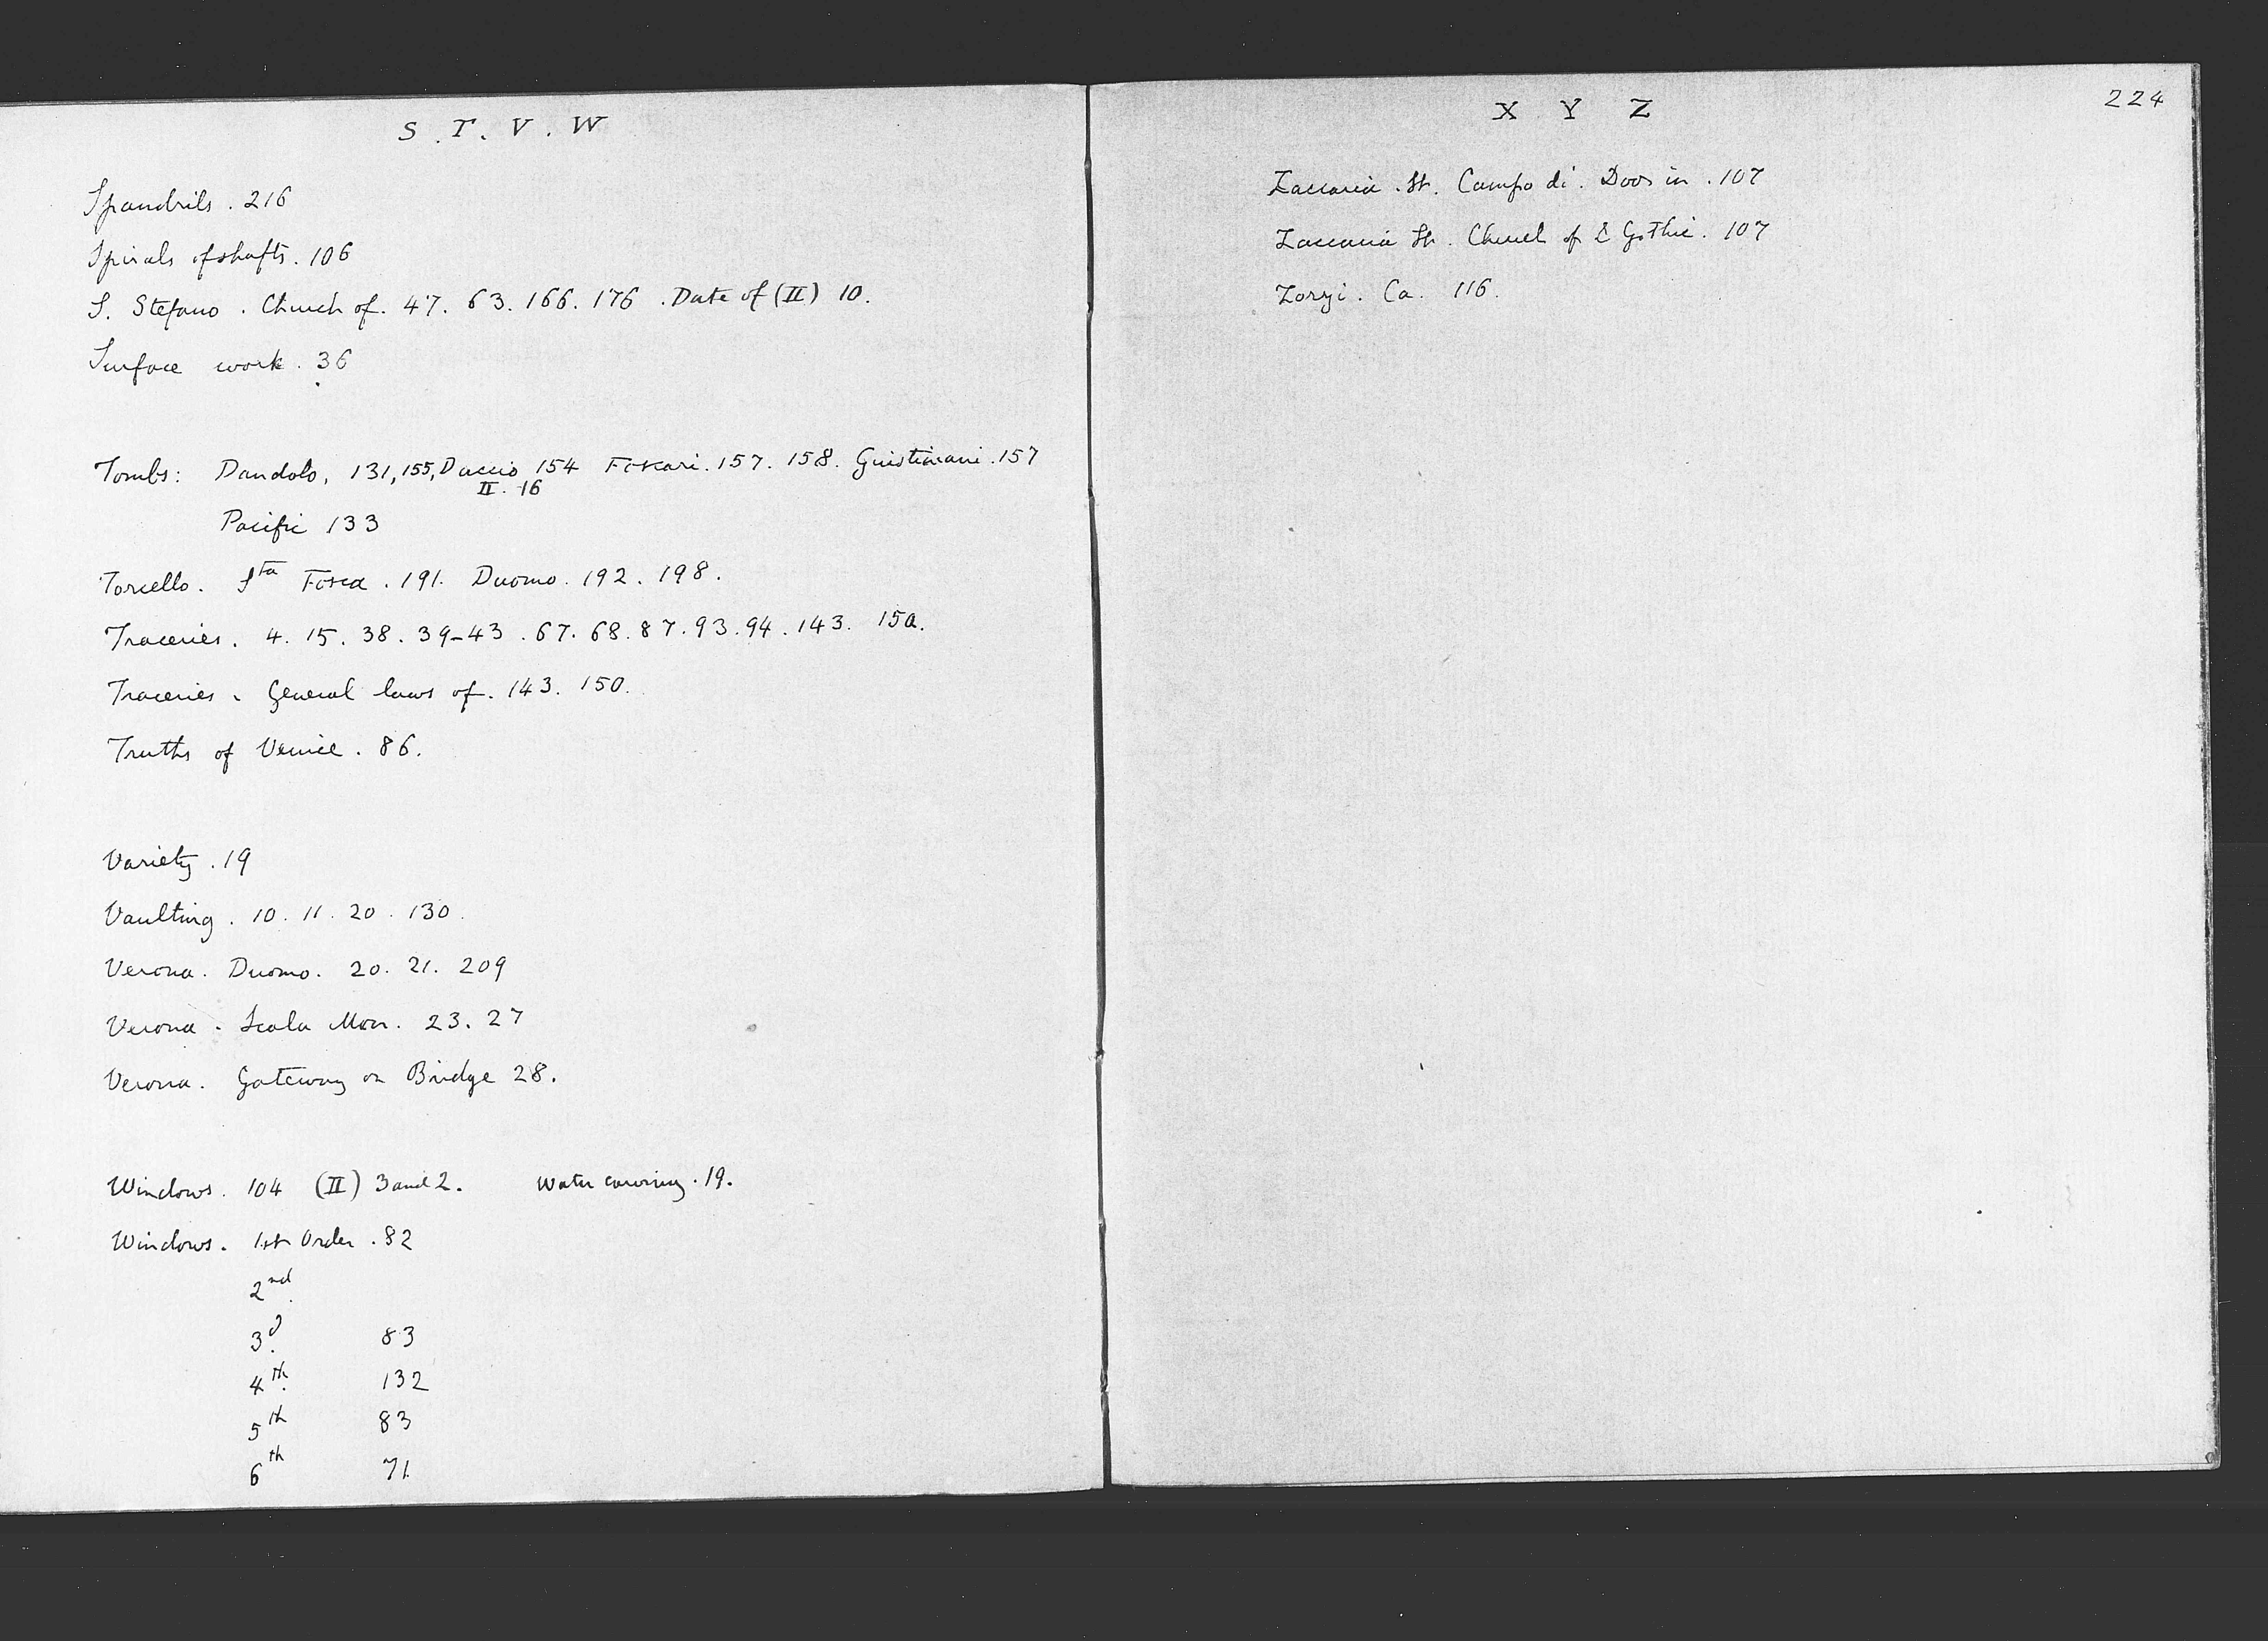 S. T. V. W
Spandrils . 216
Spirals of shafts. 106
S. Stefano . Church of. 47. 63. 166. 176 . Date of (II) 10.
Surface work . 36
Tombs: Dandolo, 131, 155, Duccio 154 Foscari. 157. 158. Guistiniani. 157
II. 16
Pacific 133
Torcello. Sta Fosca . 191. Duomo. 192. 198.
Traceries. 4. 15. 38. 39-43 . 67. 68. 87. 93. 94. 143. 150.
Traceries. General laws of. 143. 150.
Truths of Venice. 86.
Variety . 19
Vaulting . 10. 11. 20. 130.
Verona. Duomo. 20. 21. 209
Verona. Scala Mon. 23. 27
Verona. Gateway on Bridge 28.
Windows. 104 (II) 3 and 2. Water carving. 19.
Windows. 1st Order . 82
2nd.
3d. 83
4th. 132
5th 83
6th 71
X Y Z
224
Zaccaria . St. Campo di. Door in . 107
Zaccaria St. Church of E Gothic. 107
Zorzi. Ca. 116.